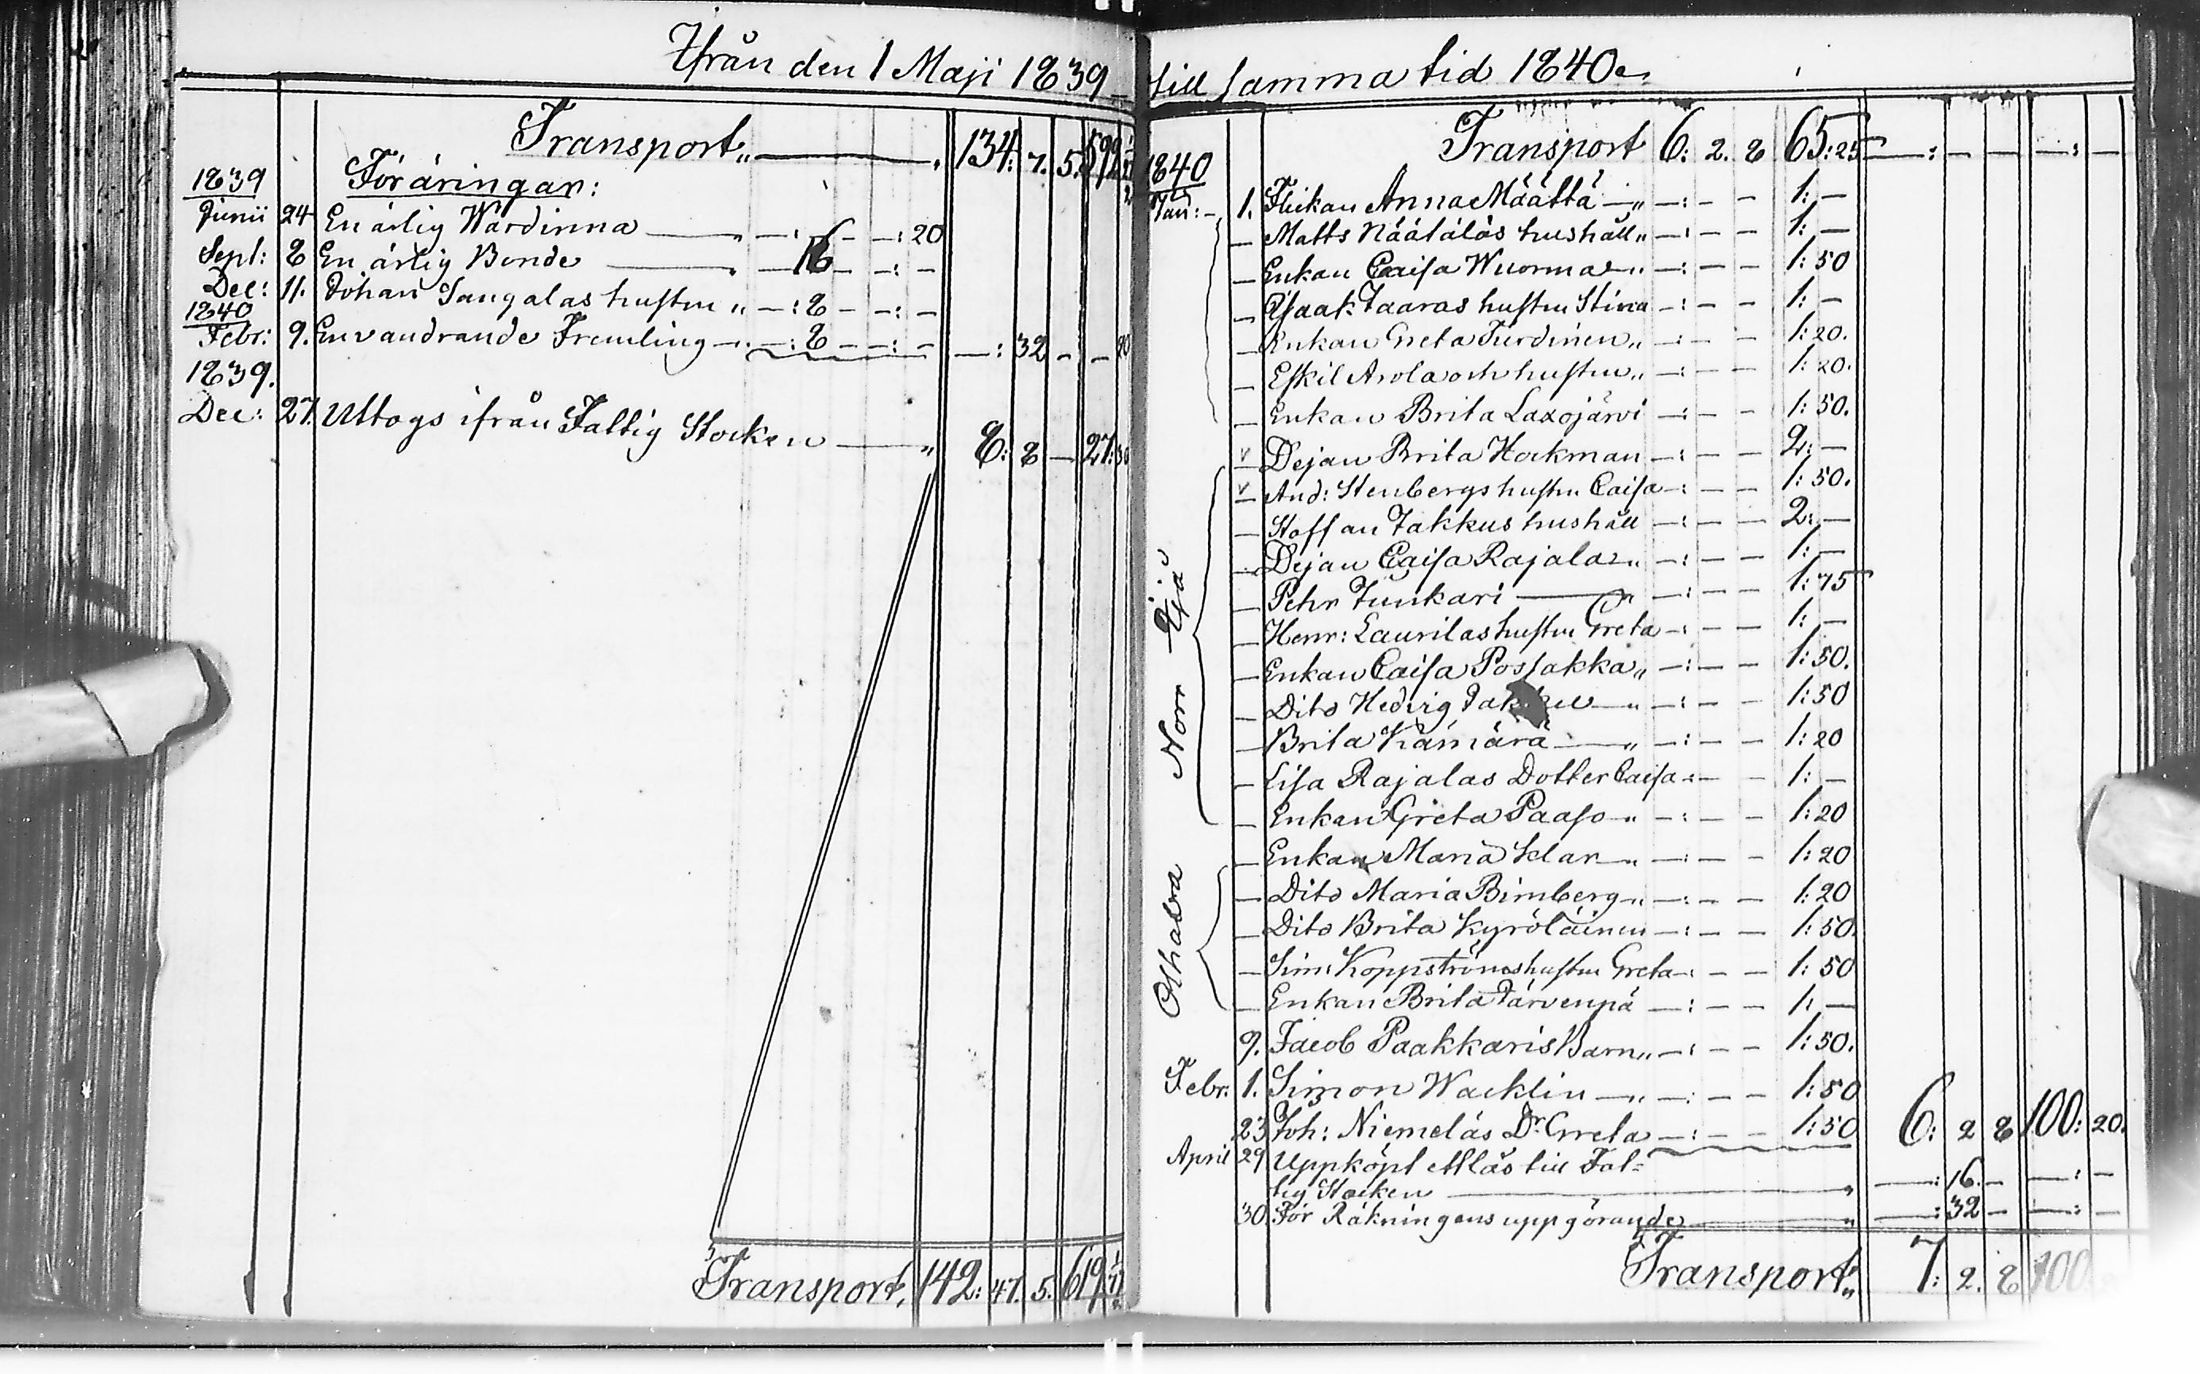 Ifrån den 1 Maji 1839
Transport „ — „ 134: 7. 5.
1839 Föräringar:
Junii 24 En ärlig Wärdinna — „ — : — — : 20
Sept: 8 En ärlig Bonde — „ — 16 — — : —
Dec: 11. Johan Sangalas hustru „ — : 8 — — : —
1840
Febr: 9. En vandrande Fremling — „ — : 8 — — : — — : 32 — — 20
1839.
Dec: 27. Uttogs ifrån Fattig Stocken — „ 8: 8 — 27: 30
Transport, 142: 47. 5. 619
till samma tid 1840
Transport 6: 2. 8 65: 25 — : — — — : —
1840
Jan: — 1. Flickan Anna Määttä — „ — : — — 1: —
— Matts Näätäläs hushåll „ — : — — 1: —
— Enkan Caisa Wuorma „ — : — — 1: 50
— Isaak Taaras hustru Stina — : — — 1: —
— Enkan Greta Turdinen „ — : — — 1: 20.
— Eskil Arola och hustru „ — : — — 1: 20.
— Enkan Brita Laxojärvi — : — — 1: 50.
Norr Yjä
v Dejan Brita Hockman — : — — 2: —
v And: Stenbergs hustru Caisa — : — — 1: 50.
— Staffan Takkus hushåll — : — — 2: —
— Dejan Caisa Rajala „ — : — — 1: —
— Pehr Junkari — „ — : — — 1: 75
— Henr: Laurilas hustru Greta — : — — 1: —
— Enkan Caisa Possakka „ — : — — 1: 50.
— Dito Hedvig — „ — : — — 1: 50
— Brita Kämärä — „ — : — — 1: 20
— Lisa Rajalas Dotter Caisa — : — — 1: —
— Enkan Greta Paaso — „ — : — — 1: 20
Olhava
— Enkan Maria Klar — „ — : — — 1: 20
— Dito Maria Birnberg — „ — : — — 1: 20
— Dito Brita Kyröläinen — : — — 1: 50.
— Sim: Koppströms hustru Greta — : — — 1: 50
— Enkan Brita Järvenpä — : — — 1: —
9. Jacob Paakkaris Barn „ — : — — 1: 50.
Febr: 1. Simon Wacklin — „ — : — — 1: 50
23 Joh: Niemeläs Dr Greta — : — — 1: 50 6: 2 8 100: 20.
April 29 Uppköpt ett Lås till Fat-
tig Stocken — „ — : 16. — — : —
30. För Räkningens uppgörande — „ — : 32 — — : —
Transport „ 7: 2. 8 100